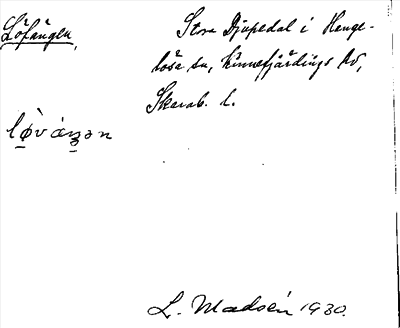 Löfången,
Stora Djupedal i Hange-
lösa sn, Kinnefjärdings hd,
Skarab. l.
lø̀váŋən
L. Madsén 1930.